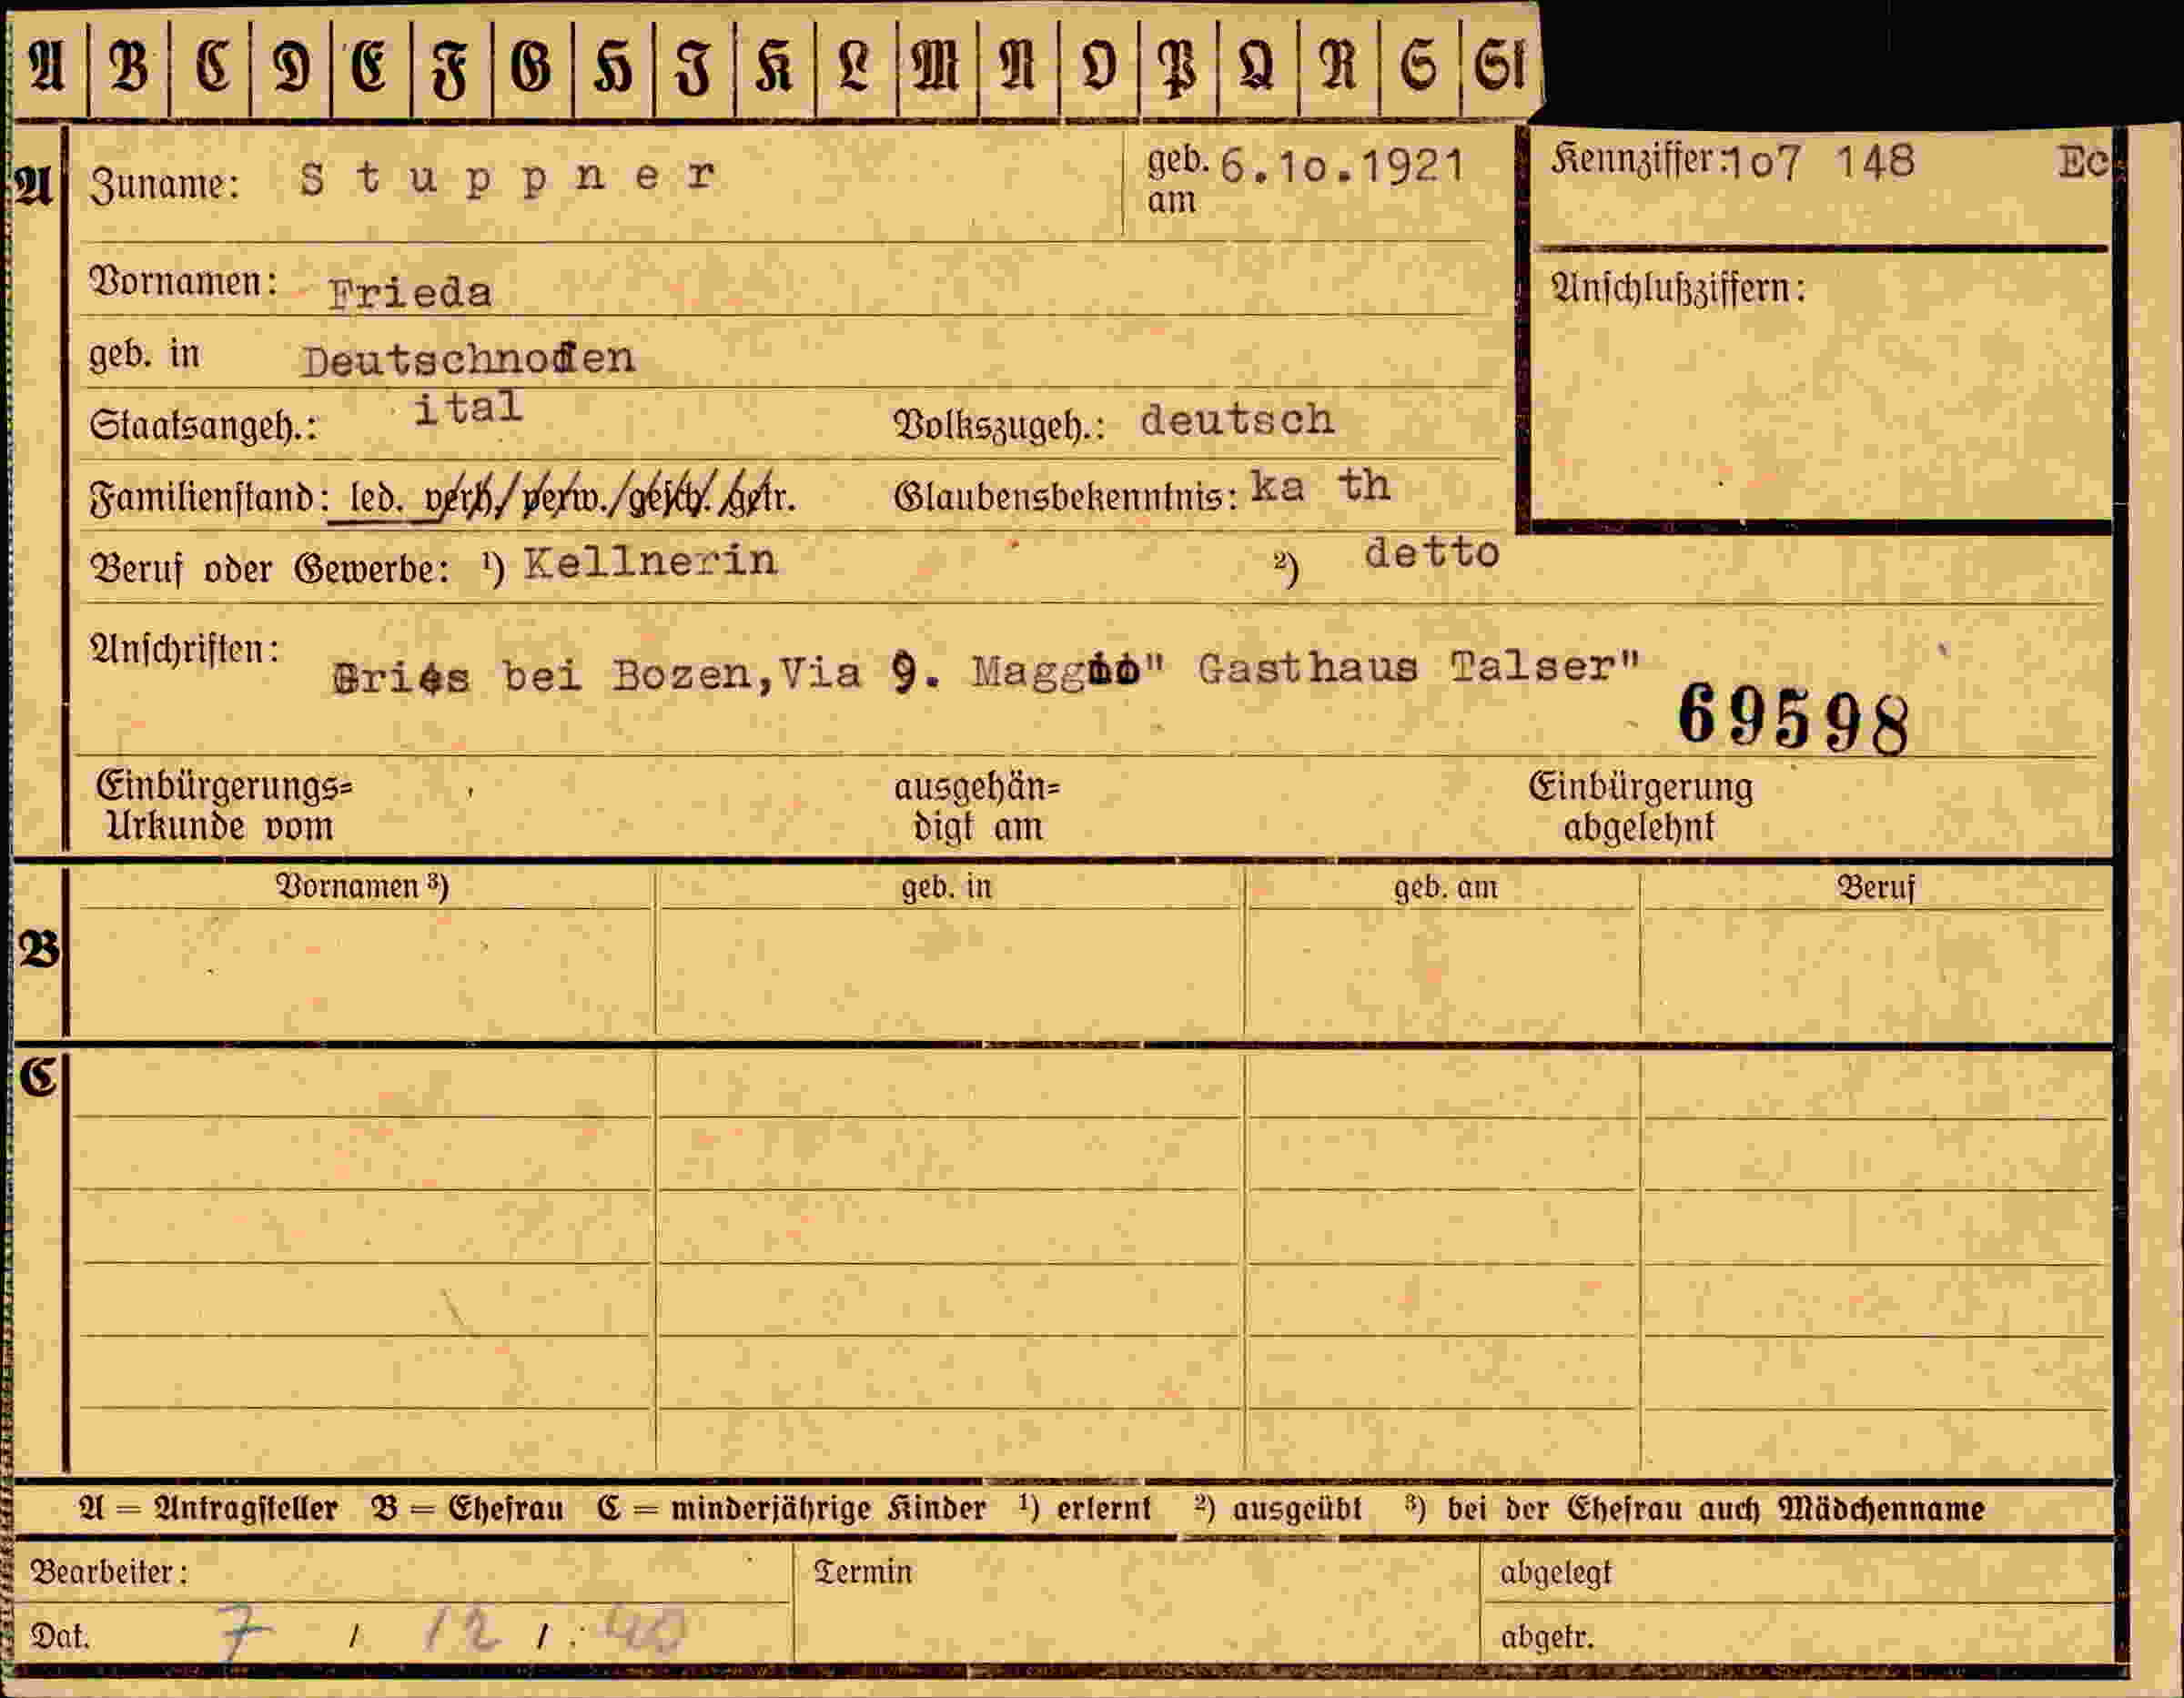 A B C D E F G H J K L M N O P Q R S St
A Zuname: Stuppner geb. am 6.10.1921 Kennziffer: 107 148 Ec
Vornamen: Frieda Anschlußziffern:
geb. in Deutschnofen
Staatsangeh.: ital Volkszugeh.: deutsch
Familienstand: led. verh./verw./gesch./getr. Glaubensbekenntnis: ka th
Beruf oder Gewerbe: ¹) Kellnerin ²) detto
Anschriften: Gries bei Bozen,Via 9. Maggio" Gasthaus Talser"
69598
Einbürgerungs= Urkunde vom ausgehän= digt am Einbürgerung abgelehnt
Vornamen ³) geb. in geb. am Beruf
B
C
A = Antragsteller B = Ehefrau C = minderjährige Kinder ¹) erlernt ²) ausgeübt ³) bei der Ehefrau auch Mädchenname
Bearbeiter: Termin abgelegt
Dat. 7 / 12 / 40 abgetr.